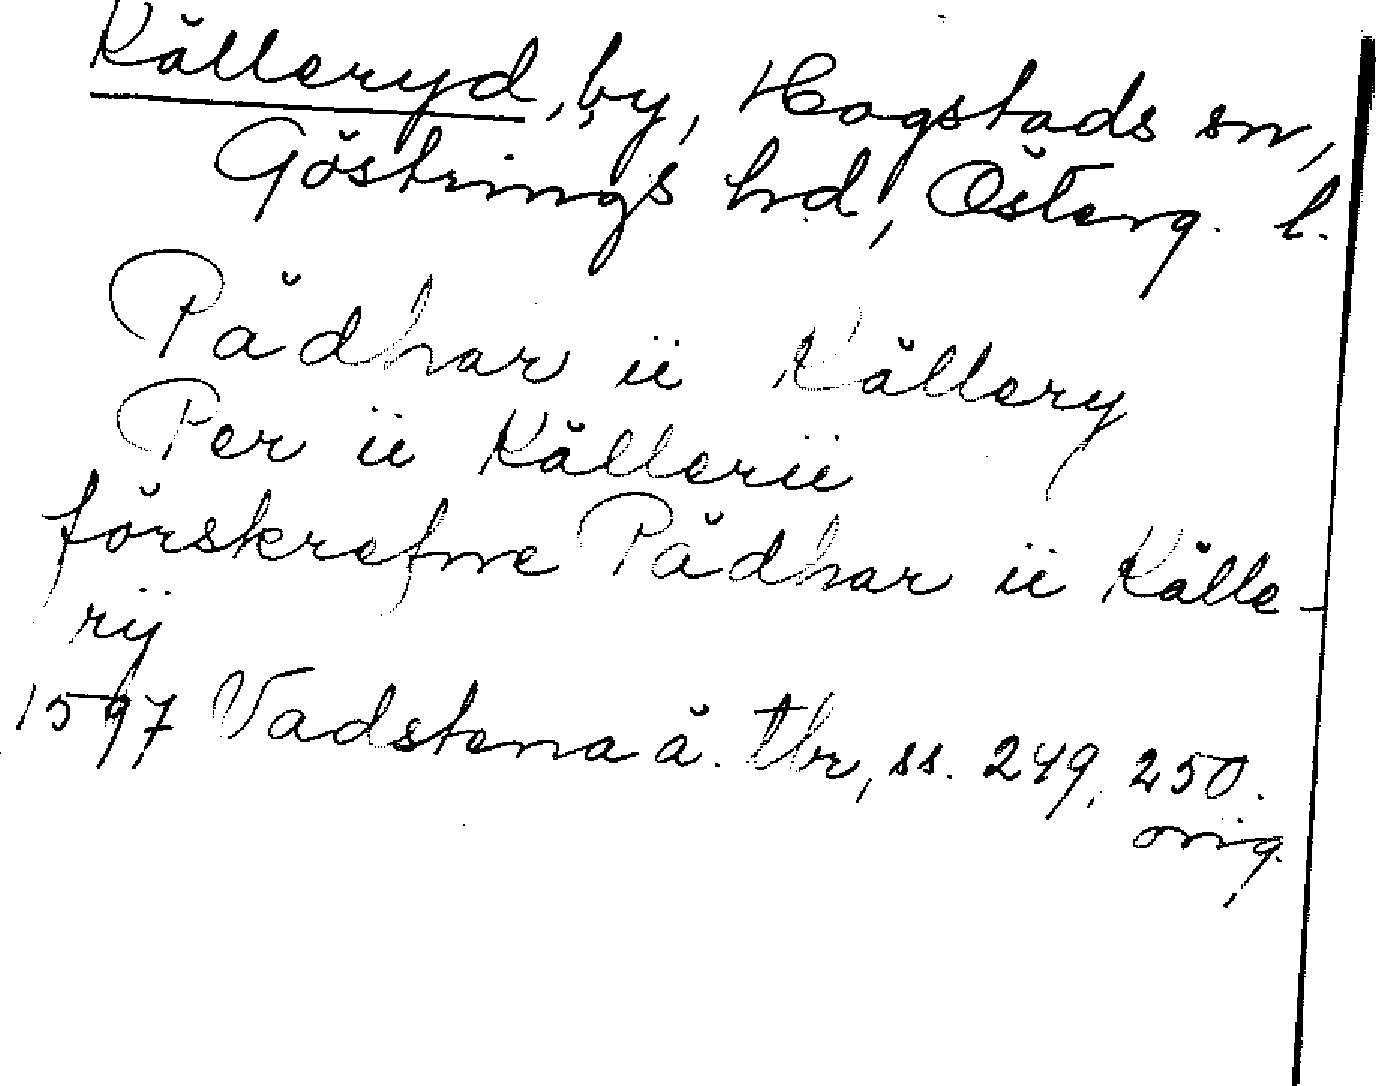 Källeryd, by, Hogstads sn,
Göstrings hd, Österg. l.
Pädhar ii Källery
Per ii Källerii
förskrefne Pädhar ii Källe-
rÿ
1597 Vadstena ä. tbr, ss. 249, 250.
orig.